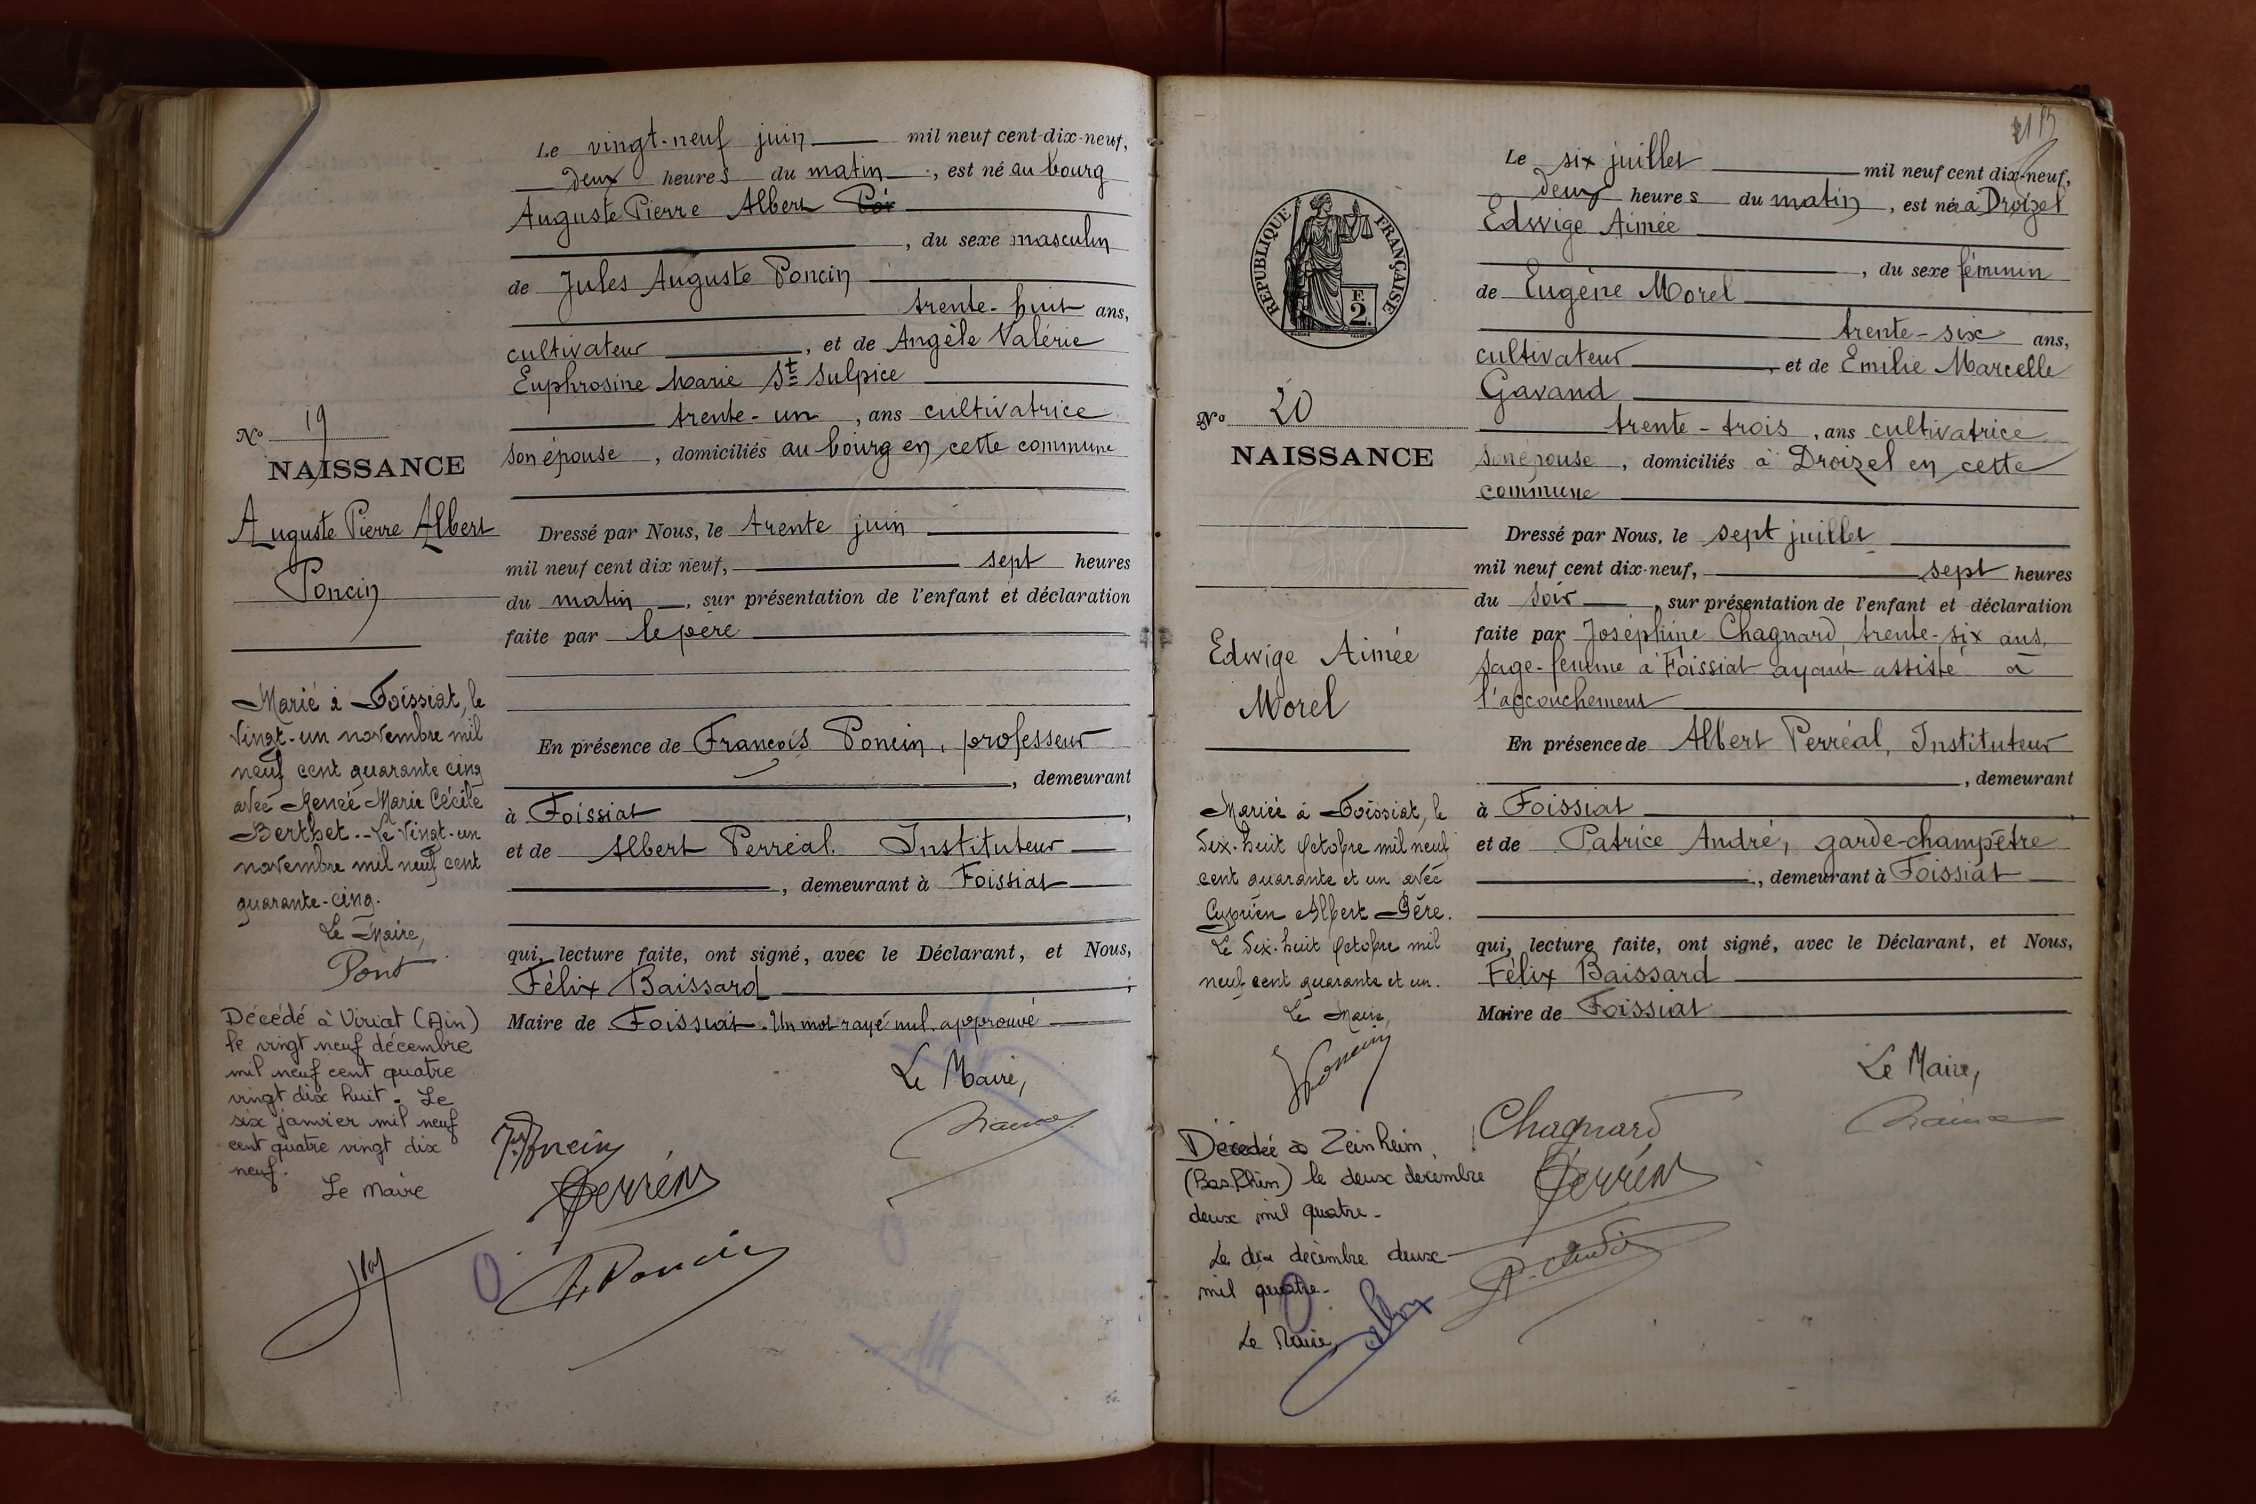 Le vingt-neuf juin mil neuf cent dix-neuf,
deux heures du matin, est né au bourg
Auguste Pierre Albert
, du sexe masculin
de Jules Auguste Poncin
trente-huit ans,
cultivateur, et de Angèle Valérie
Euphrosine Marie St Sulpice
trente-un, ans cultivatrice
son épouse, domiciliés au bourg en cette commune
No 19
NAISSANCE
Auguste Pierre Albert
Poncin
Dressé par Nous, le trente juin
mil neuf cent dix neuf, sept heures
du matin, sur présentation de l'enfant et déclaration
faite par le père
En présence de François Poncin, professeur
, demeurant
à Foissiat,
et de Albert Perréal. Instituteur
, demeurant à Foissiat
qui, lecture faite, ont signé, avec le Déclarant, et Nous,
Félix Baissard;
Maire de Foissiat. Un mot rayé nul approuvé
Le Maire,
Poncin
A. Poncin
Marié à Foissiat, le
vingt-un novembre mil
neuf cent quarante cinq
avec Renée Marie Cécile
Berthet. - Le vingt-un
novembre mil neuf cent
quarante-cinq.
Le Maire,
Pont
Décédé à Viriat (Ain)
le vingt neuf décembre
mil neuf cent quatre
vingt dix huit. Le
six janvier mil neuf
cent quatre vingt dix
neuf.
Le Maire
Le six juillet mil neuf cent dix-neuf,
deux heures du matin, est née à Droizel
Edwige Aimée
, du sexe féminin
de Eugène Morel
trente-six ans,
cultivateur, et de Emilie Marcelle
Gavand
trente-trois, ans cultivatrice
son épouse, domiciliés à Droizel en cette
commune
RÉPUBLIQUE FRANÇAISE
F.
2.
No 20
NAISSANCE
Edwige Aimée
Morel
Dressé par Nous, le sept juillet
mil neuf cent dix-neuf, sept heures
du soir, sur présentation de l'enfant et déclaration
faite par Joséphine Chagnard, trente-six ans,
sage-femme à Foissiat ayant assisté à
l'accouchement
En présence de Albert Perréal, Instituteur
, demeurant
à Foissiat,
et de Patrice André, garde-champêtre
, demeurant à Foissiat
qui, lecture faite, ont signé, avec le Déclarant, et Nous,
Félix Baissard
Maire de Foissiat
Le Maire,
Chagnard
Mariée à Foissiat, le
dix-huit octobre mil neuf
cent quarante et un avec
Cyprien Albert Père.
Le dix-huit octobre mil
neuf cent quarante et un.
Le Maire,
Poncin
Décédée à Zeinheim
(Bas Rhin) le deux décembre
deux mil quatre -
Le dix décembre deux
mil quatre -
Le Maire,